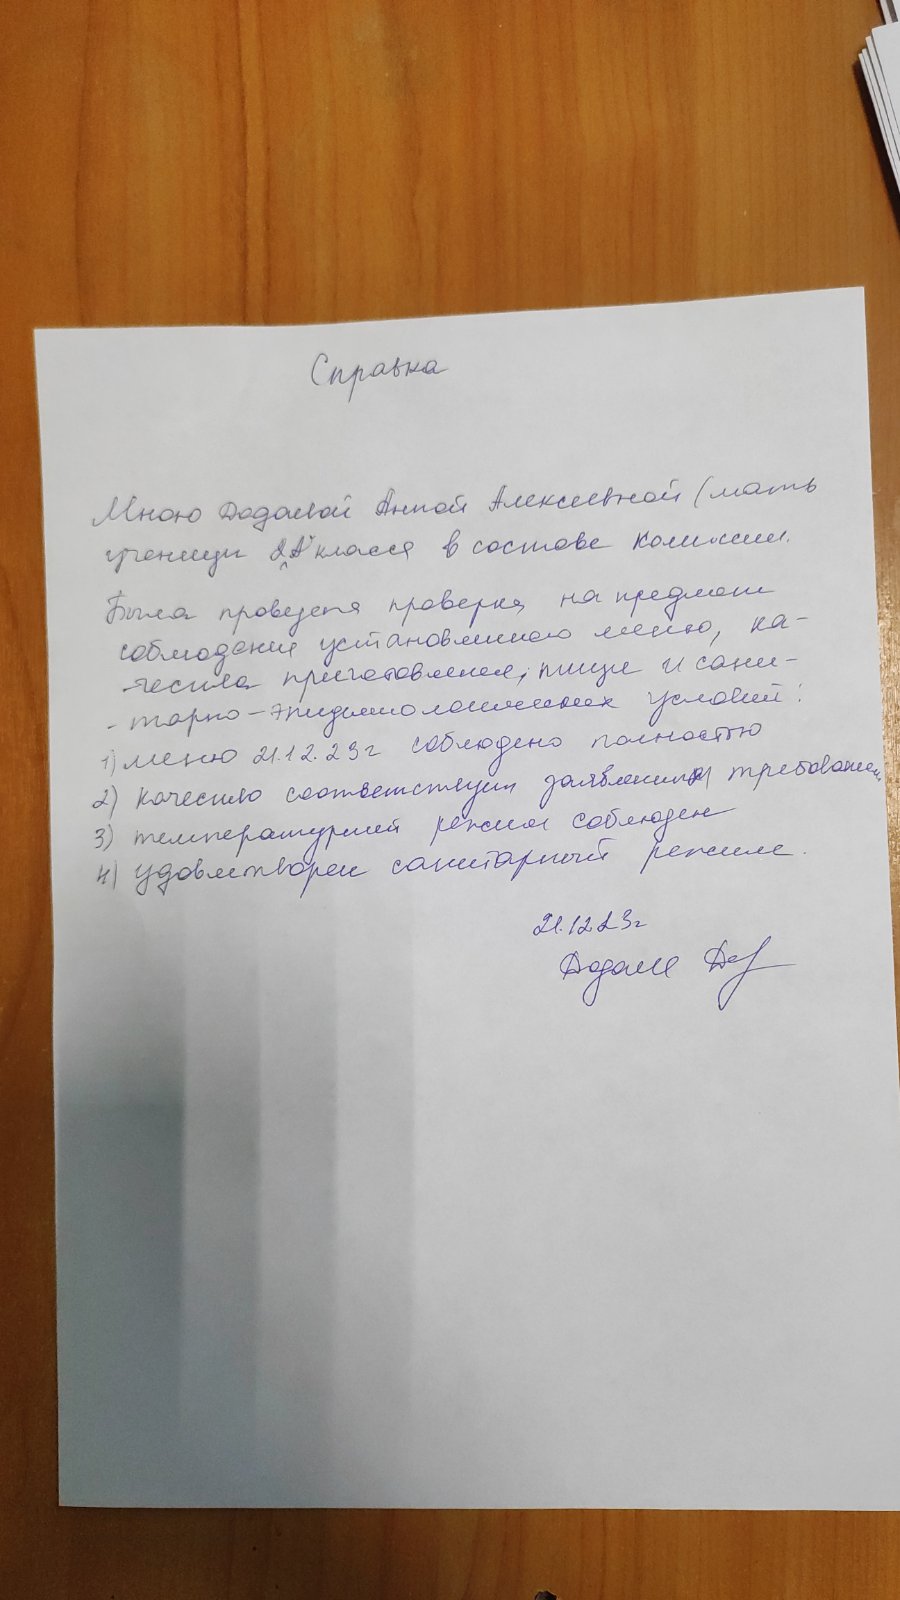 Справка
Мною Додаевой Анной Алексеевной (мать
ученицы 2"А" класса в составе комиссии.
Была проведена проверка на предмет
соблюдения установленного меню, ка-
чества приготовления, пищи и сани-
-тарно-эпидемиологических условий:
1) меню 21.12.23г соблюдено полностью
2) качество соответствует заявленным требованиям
3) температурный режим соблюден
4) удовлетворен санитарный режим.
21.12.23г
Додаев